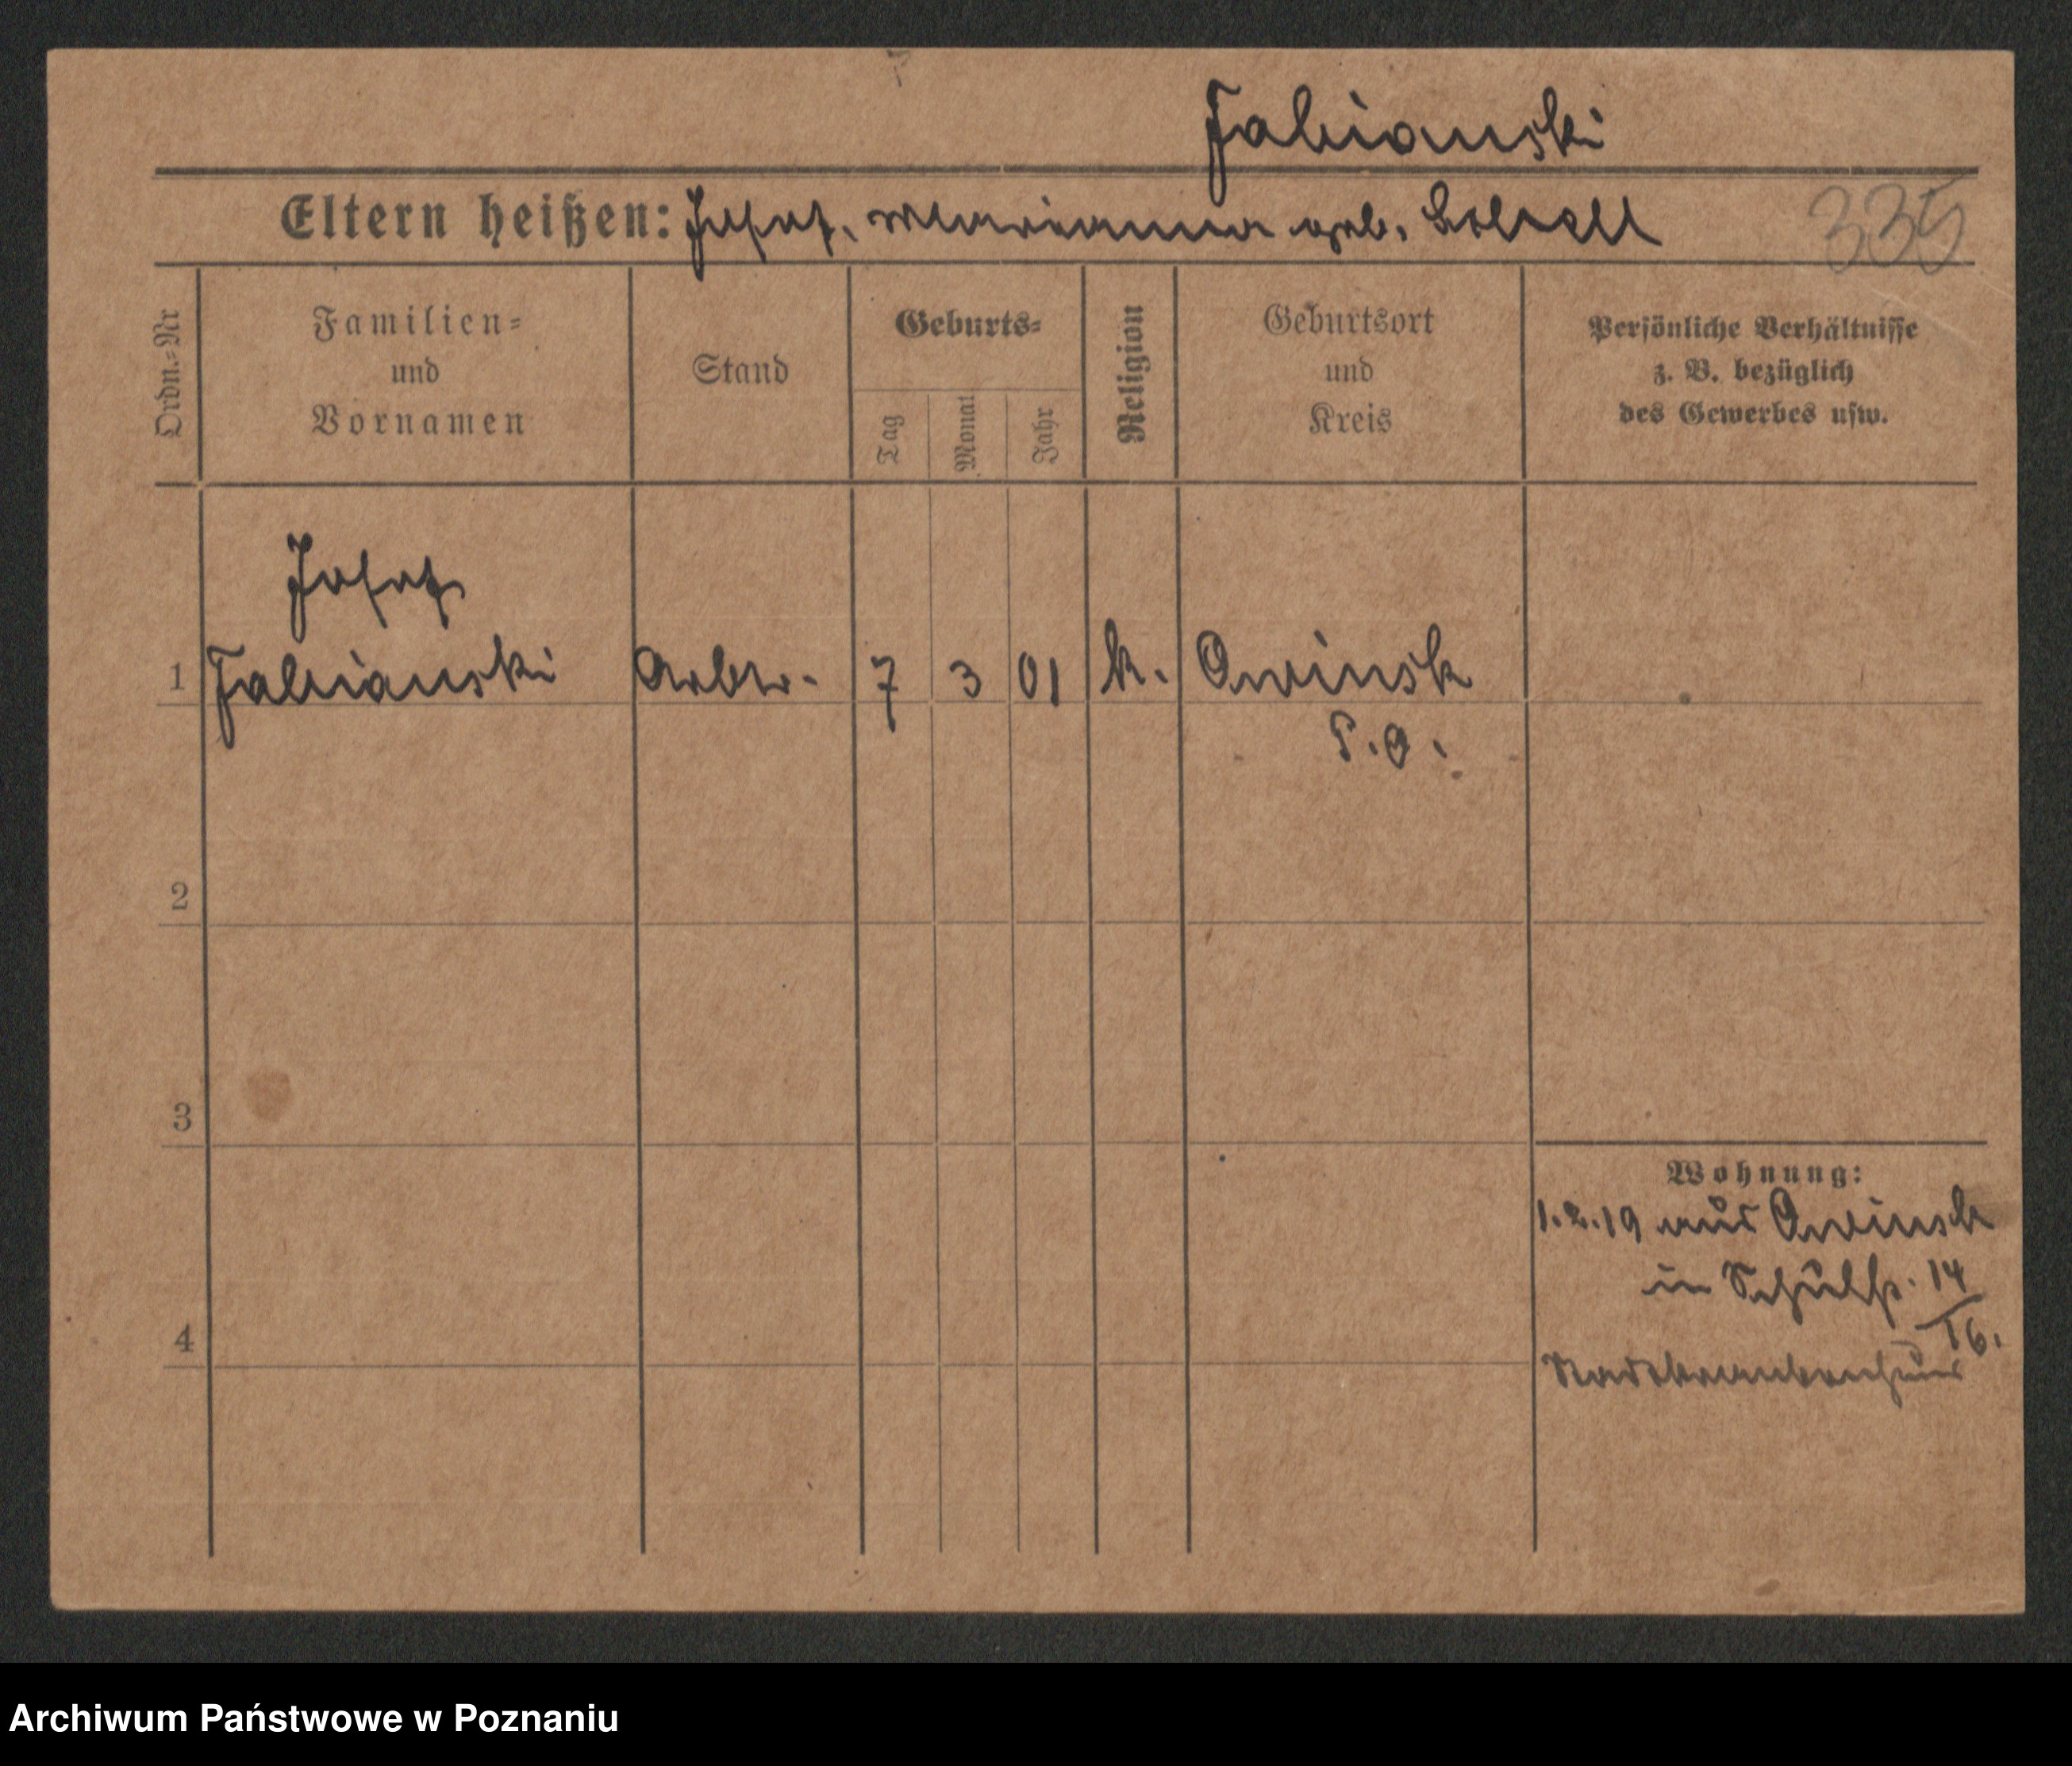 Fabianski
Eltern heißen: Josef, Marianna geb.
335
Ordn.-Nr
Familien-
und
Vornamen
Stand
Geburts-
Tag
Monat
Jahr
Religion
Geburtsort
und
Kreis
Persönliche Verhältnisse
z. B. bezüglich
des Gewerbes usw.
Josef
1 Fabianski Arbtr. 7 3 01 k. Owinsk
P.O.
2
3
4
Wohnung:
1.2.19 aus Owinsk
in Schulstr. 14
/16.
Stadtkrankenhaus
Archiwum Państwowe w Poznaniu